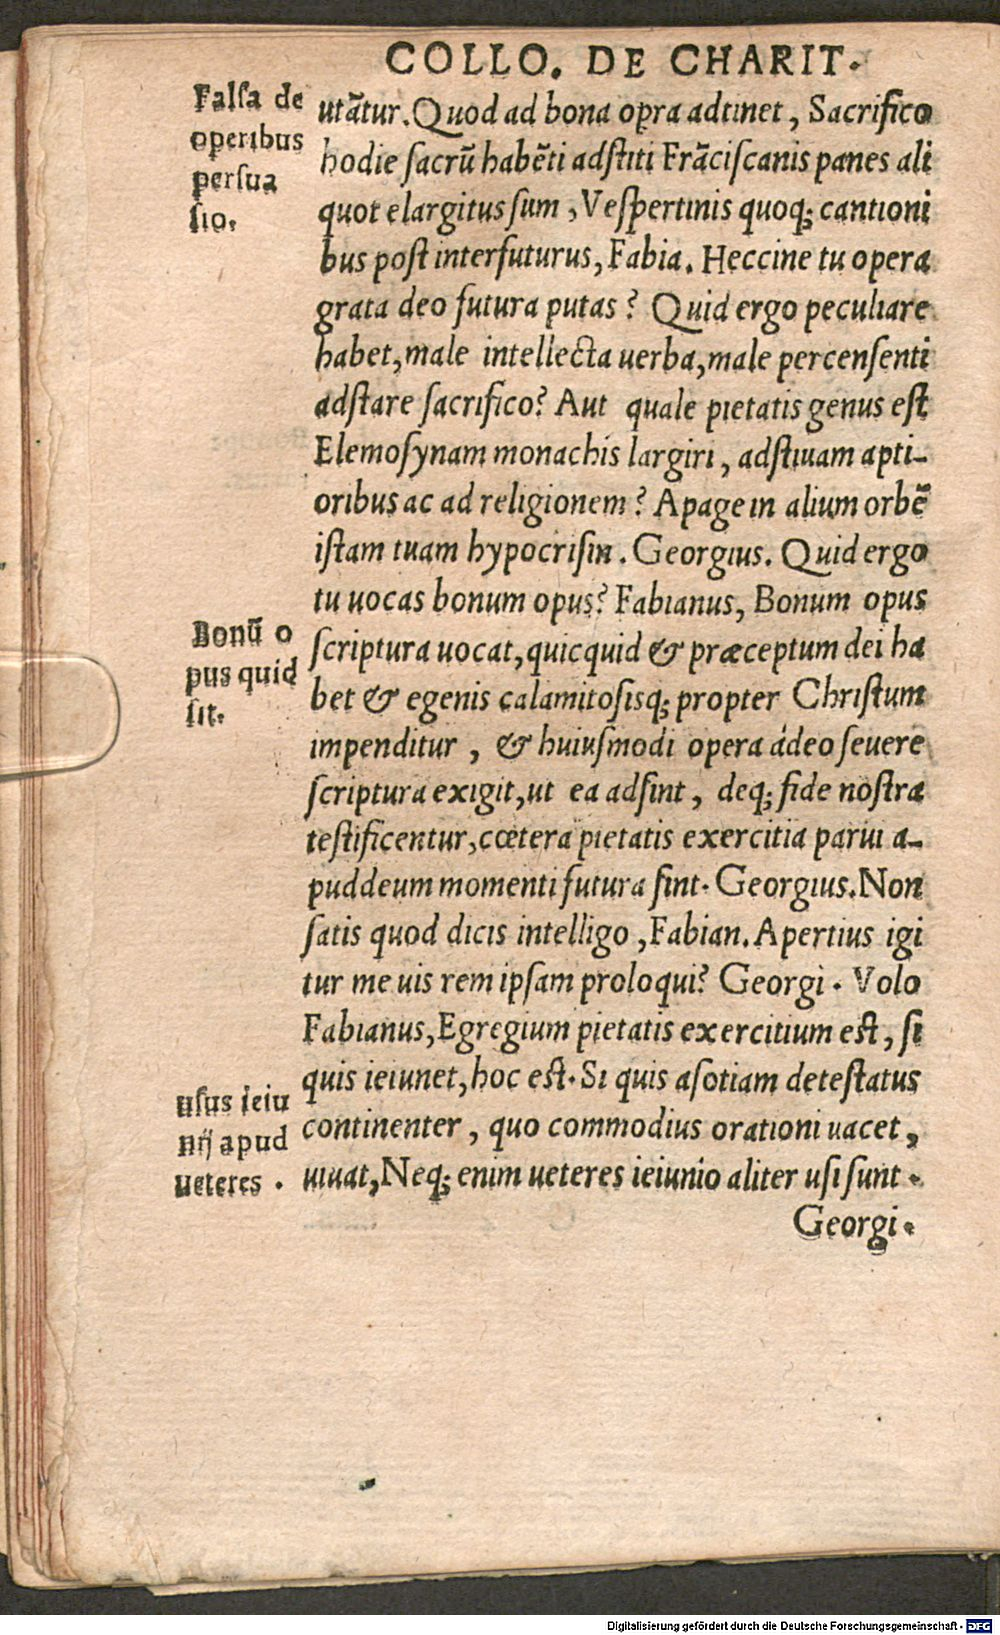 COLLO. DE CHARIT.
Falſa de
operibus
perſua
ſio.
utãtur. Quod ad bona opra adtinet, Sacrifico
hodie ſacrũ habẽti adſtiti Frãciſcanis panes ali
quot elargitus ſum, Veſpertinis quoq; cantioni
bus poſt interfuturus, Fabia. Heccine tu opera
grata deo futura putas? Quid ergo peculiare
habet, male intellecta uerba, male percenſenti
adſtare ſacrifico? Aut quale pietatis genus eſt
Elemoſynam monachis largiri, adſtiuam apti-
oribus ac ad religionem? Apage in alium orbẽ
iſtam tuam hypocriſin. Georgius. Quid ergo
tu uocas bonum opus? Fabianus, Bonum opus
Bonũ o
pus quid
ſit.
ſcriptura uocat, quicquid & præceptum dei ha
bet & egenis calamitoſisq; propter Chriſtum
impenditur, & huiuſmodi opera ádeo ſeuere
ſcriptura exigit, ut ea adſint, deq; fide noſtra
teſtificentur, cœtera pietatis exercitia parui a-
pud deum momenti futura ſint. Georgius. Non
ſatis quod dicis intelligo, Fabian. Apertius igi
tur me uis rem ipſam proloqui? Georgi. Volo
Fabianus, Egregium pietatis exercitium eſt, ſi
quis ieiunet, hoc eſt. Si quis aſotiam deteſtatus
uſus ieiu
nij apud
ueteres.
continenter, quo commodius orationi uacet,
uiuat, Neq; enim ueteres ieiunio aliter uſi ſunt.
Georgi.
Digitalisierung gefördert durch die Deutsche Forschungsgemeinschaft - DFG